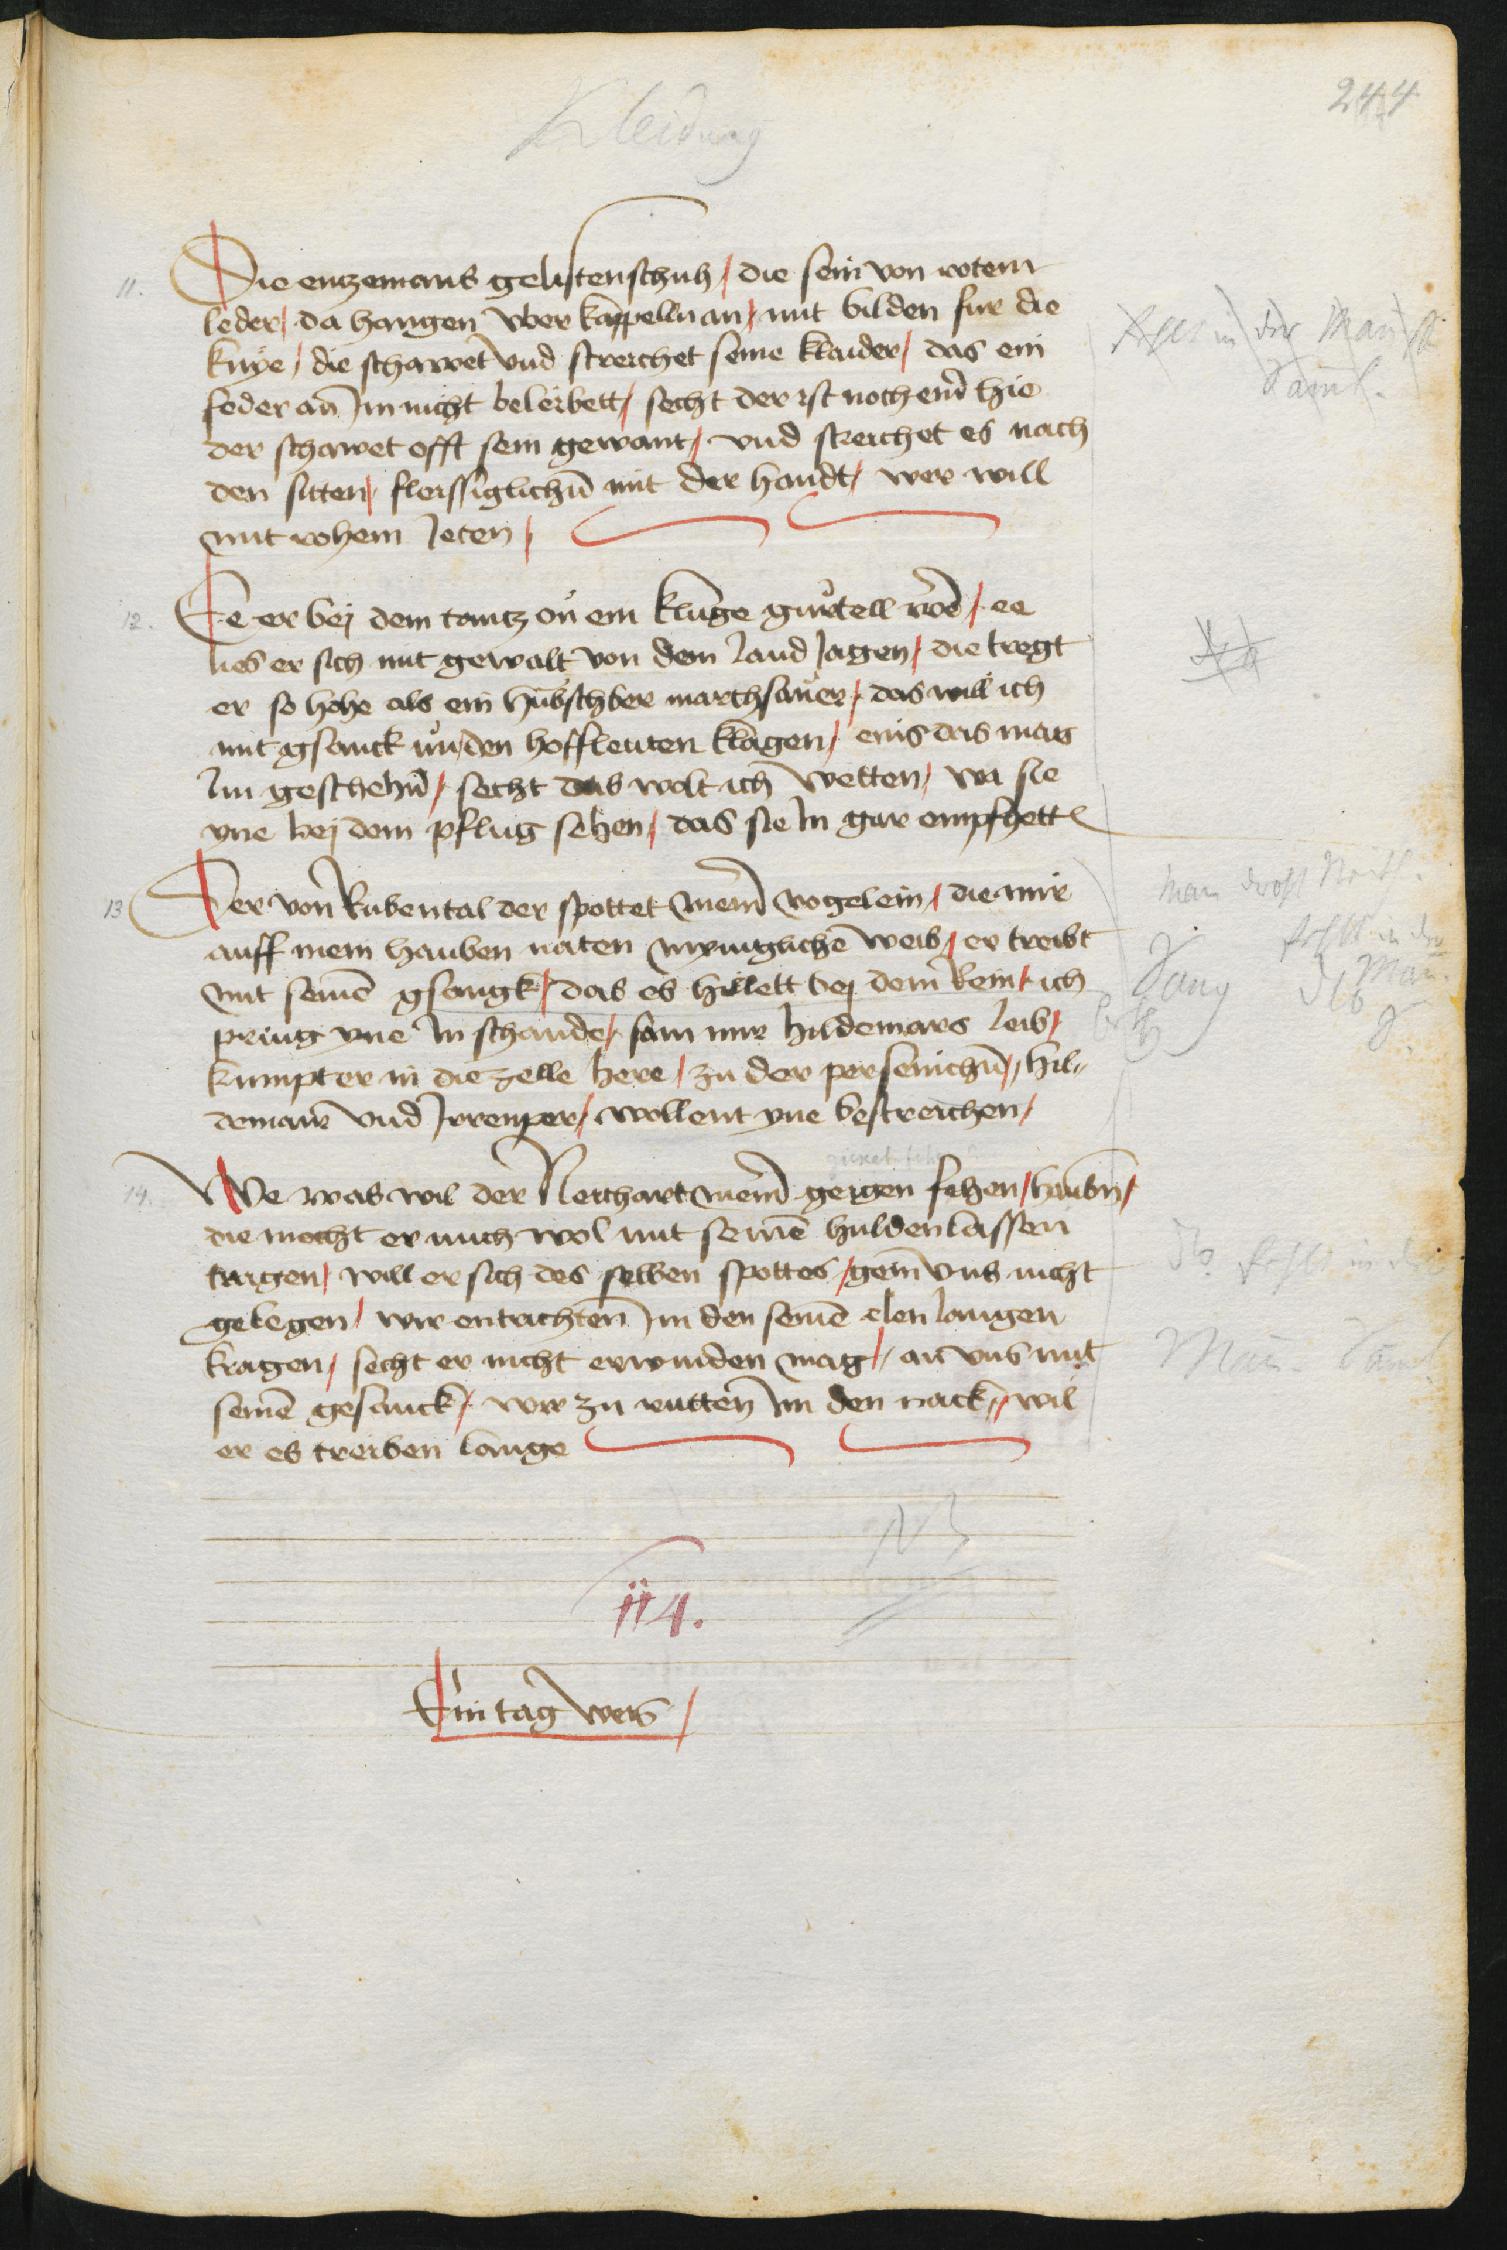 244
Kleidung
11.
Die enzemans gelistenschuh / die sein von rotem
leder / da hangen vber kappelln an / mit bilden fur die
knÿe / die schawet vnd streichet seine klaider / das ein
feder an Im nicht beleibett / secht der ist noch einr hie
der schawet offt sein gewant / vnd streichet es nach
den sitten / fleissiglichn mit der handt / wer will
mit rohem Jeten /
12.
Ee er bej dem tantz on ein kluge gurtell werd / ee
lies er sich mit gewalt von dem land Jagen / die tregt
er so hohe als ein hubschber marchsawer / das will ich
mit gsanck nu den hoffleuten klagen / enis das mag
Im geschehn / secht das wolt ich wetten / wa sie
yne bej dem pflug sehen / das sie In gar empfhett
13
Der von Rubental der spottet meinr vogelein / die mir
auff mein hauben naten mynigliche weib / er treibt
mit seine gsangk / das es hillett bej dem Rein / ich
pring yne In schande / sam mir hildemars leib /
kumpt er in die zelle here / zu der persenichn / hil-
demar vnd Irrenper / wollent yne bestreichen /
14.
We was wil der Neithart meinr geigen sehen / haubn /
die mocht er mich wol mit seine hulden lassen
tragen / will er sich des selben spottes / gein vns nicht
gelegen / wir entrichten Im den seine elen langen
kragen / secht er nicht erwinden mag / an vns mit
seine gesanck / wir zu rutten Im den nack / wil
er es treiben lange
Man droht Neith.
fehlt in der
114.
Ein tag weis /